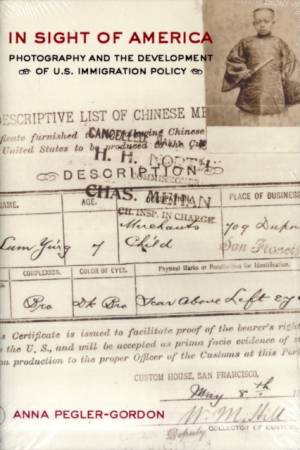 IN SIGHT OF AMERICA
PHOTOGRAPHY AND THE DEVELOPMENT
OF U.S. IMMIGRATION POLICY
DESCRIPTIVE LIST OF CHINESE ME
ficate furnished to following Chinese
United States to be produced
CANCELLED
H. H. NORTH
DESCRIPTION
CHAS. MEHAN
CH. INSP. IN CHARGE
NAME. AGE. PLACE OF BUSINESS
Merchants 709 Dupon
Lum Yung 7 Child San Francis
COMPLEXION. COLOR OF EYES. Physical Marks or Peculiarities for Identification.
Bro Dk Bro Scar above Left eye
is Certificate is issued to facilitate proof of the bearer's righ
the U. S., and will be accepted as prima facie evidence of
on production to the proper Officer of the Customs at this Por
CUSTOM HOUSE, SAN FRANCISCO,
May 8th
ANNA PEGLER-GORDON
Deputy COLLECTOR OF CUSTOMS